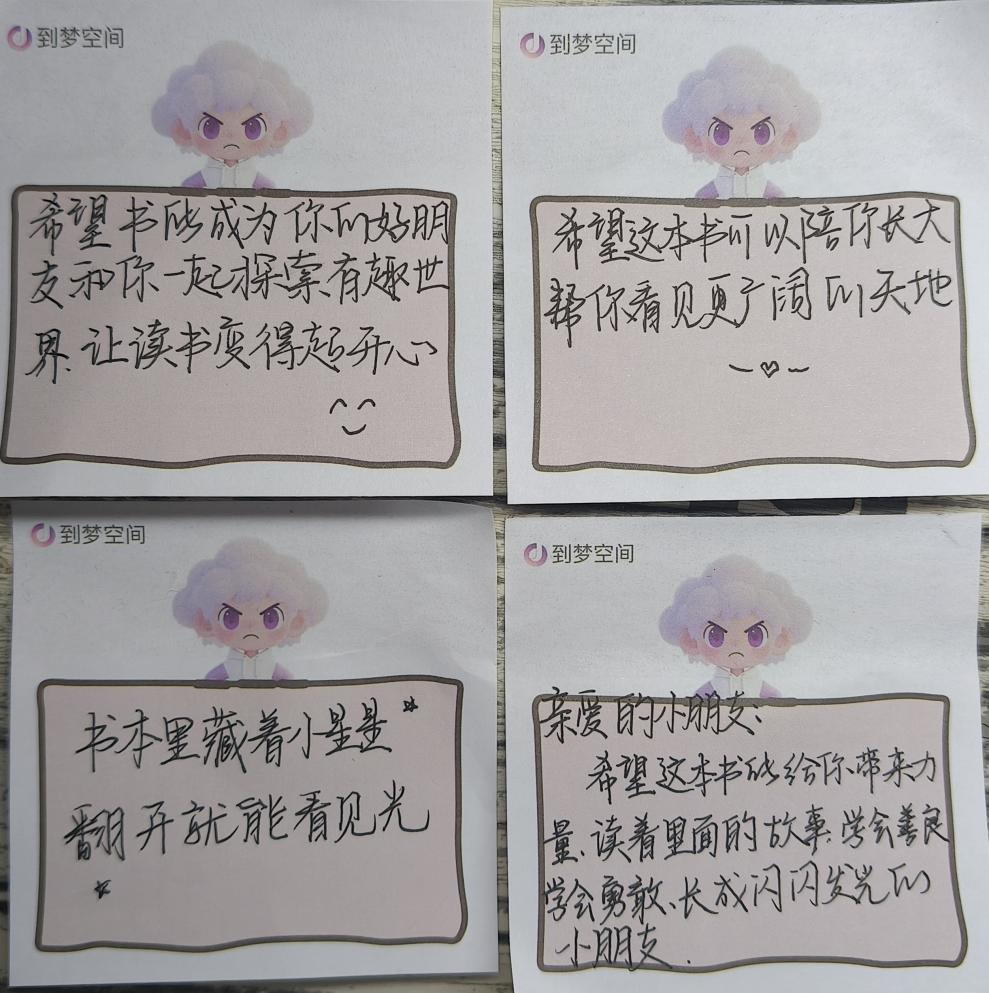 到梦空间
希望书能成为你的好朋
友和你一起探索有趣世
界、让读书变得超开心
到梦空间
希望这本书可以陪你长大
帮你看见更广阔的天地
到梦空间
书本里藏着小星星
翻开就能看见光
到梦空间
亲爱的小朋友:
希望这本书能给你带来力
量、读着里面的故事、学会善良
学会勇敢、长成闪闪发光的
小朋友.